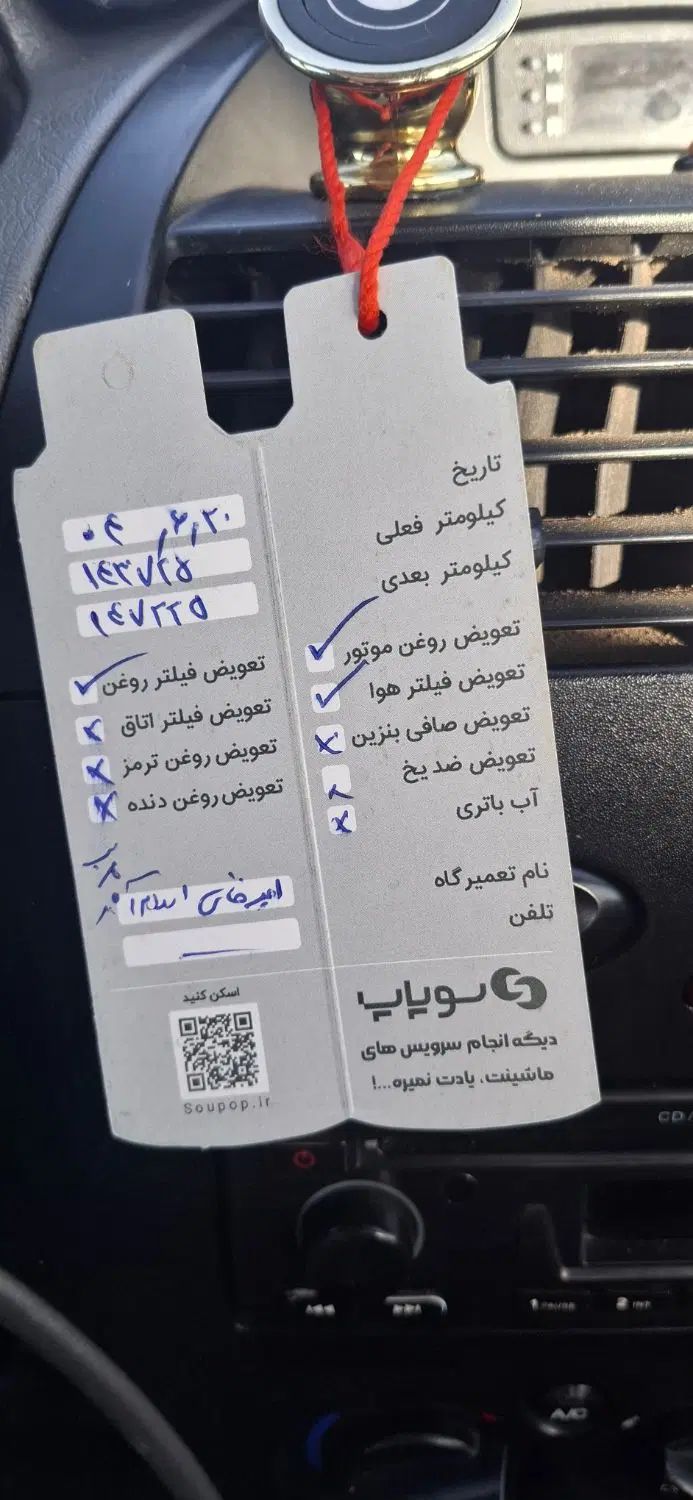 تاریخ
کیلومتر فعلی
کیلومتر بعدی
تعویض روغن موتور ✓
تعویض فیلتر هوا ✓
تعویض صافی بنزین ×
تعویض ضد یخ
آب باتری ×
نام تعمیرگاه
تلفن
سوپاپ
دیگه انجام سرویس های
ماشینت، یادت نمیره...!
۰۴
۱۴۷۲۲۵
تعویض فیلتر روغن ✓
تعویض فیلتر اتاق ×
تعویض روغن ترمز ×
تعویض روغن دنده ×
اسکن کنید
Soupop.ir
CD
A/C